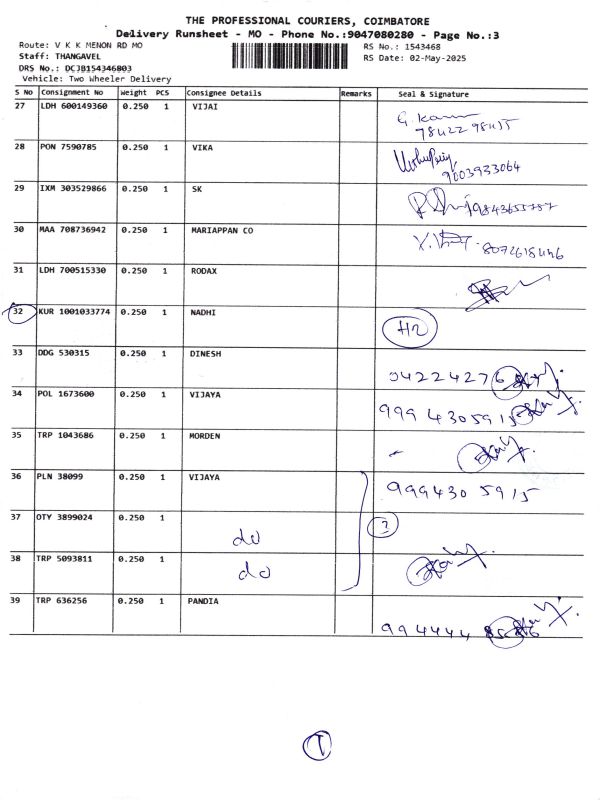 THE PROFESSIONAL COURIERS, COIMBATORE
Delivery Runsheet - MO - Phone No.:9047080280 - Page No.:3
Route: V K K MENON RD MO
RS No.: 1543468
Staff: THANGAVEL
RS Date: 02-May-2025
DRS No.: DCJB154346803
Vehicle: Two Wheeler Delivery
S No Consignment No Weight PCS Consignee Details Remarks Seal & Signature
27 LDH 600149360 0.250 1 VIJAI
78422 98415
28 PON 7590785 0.250 1 VIKA
9003933064
29 IXM 303529866 0.250 1 SK
9843655787
30 MAA 708736942 0.250 1 MARIAPPAN CO
8072618446
31 LDH 700515330 0.250 1 RODAX
32 KUR 1001033774 0.250 1 NADHI
33 DDG 530315 0.250 1 DINESH
34 POL 1673600 0.250 1 VIJAYA
35 TRP 1043686 0.250 1 MORDEN
36 PLN 38099 0.250 1 VIJAYA 999430 5915
37 OTY 3899024 0.250 1 do 3
38 TRP 5093811 0.250 1 do
39 TRP 636256 0.250 1 PANDIA